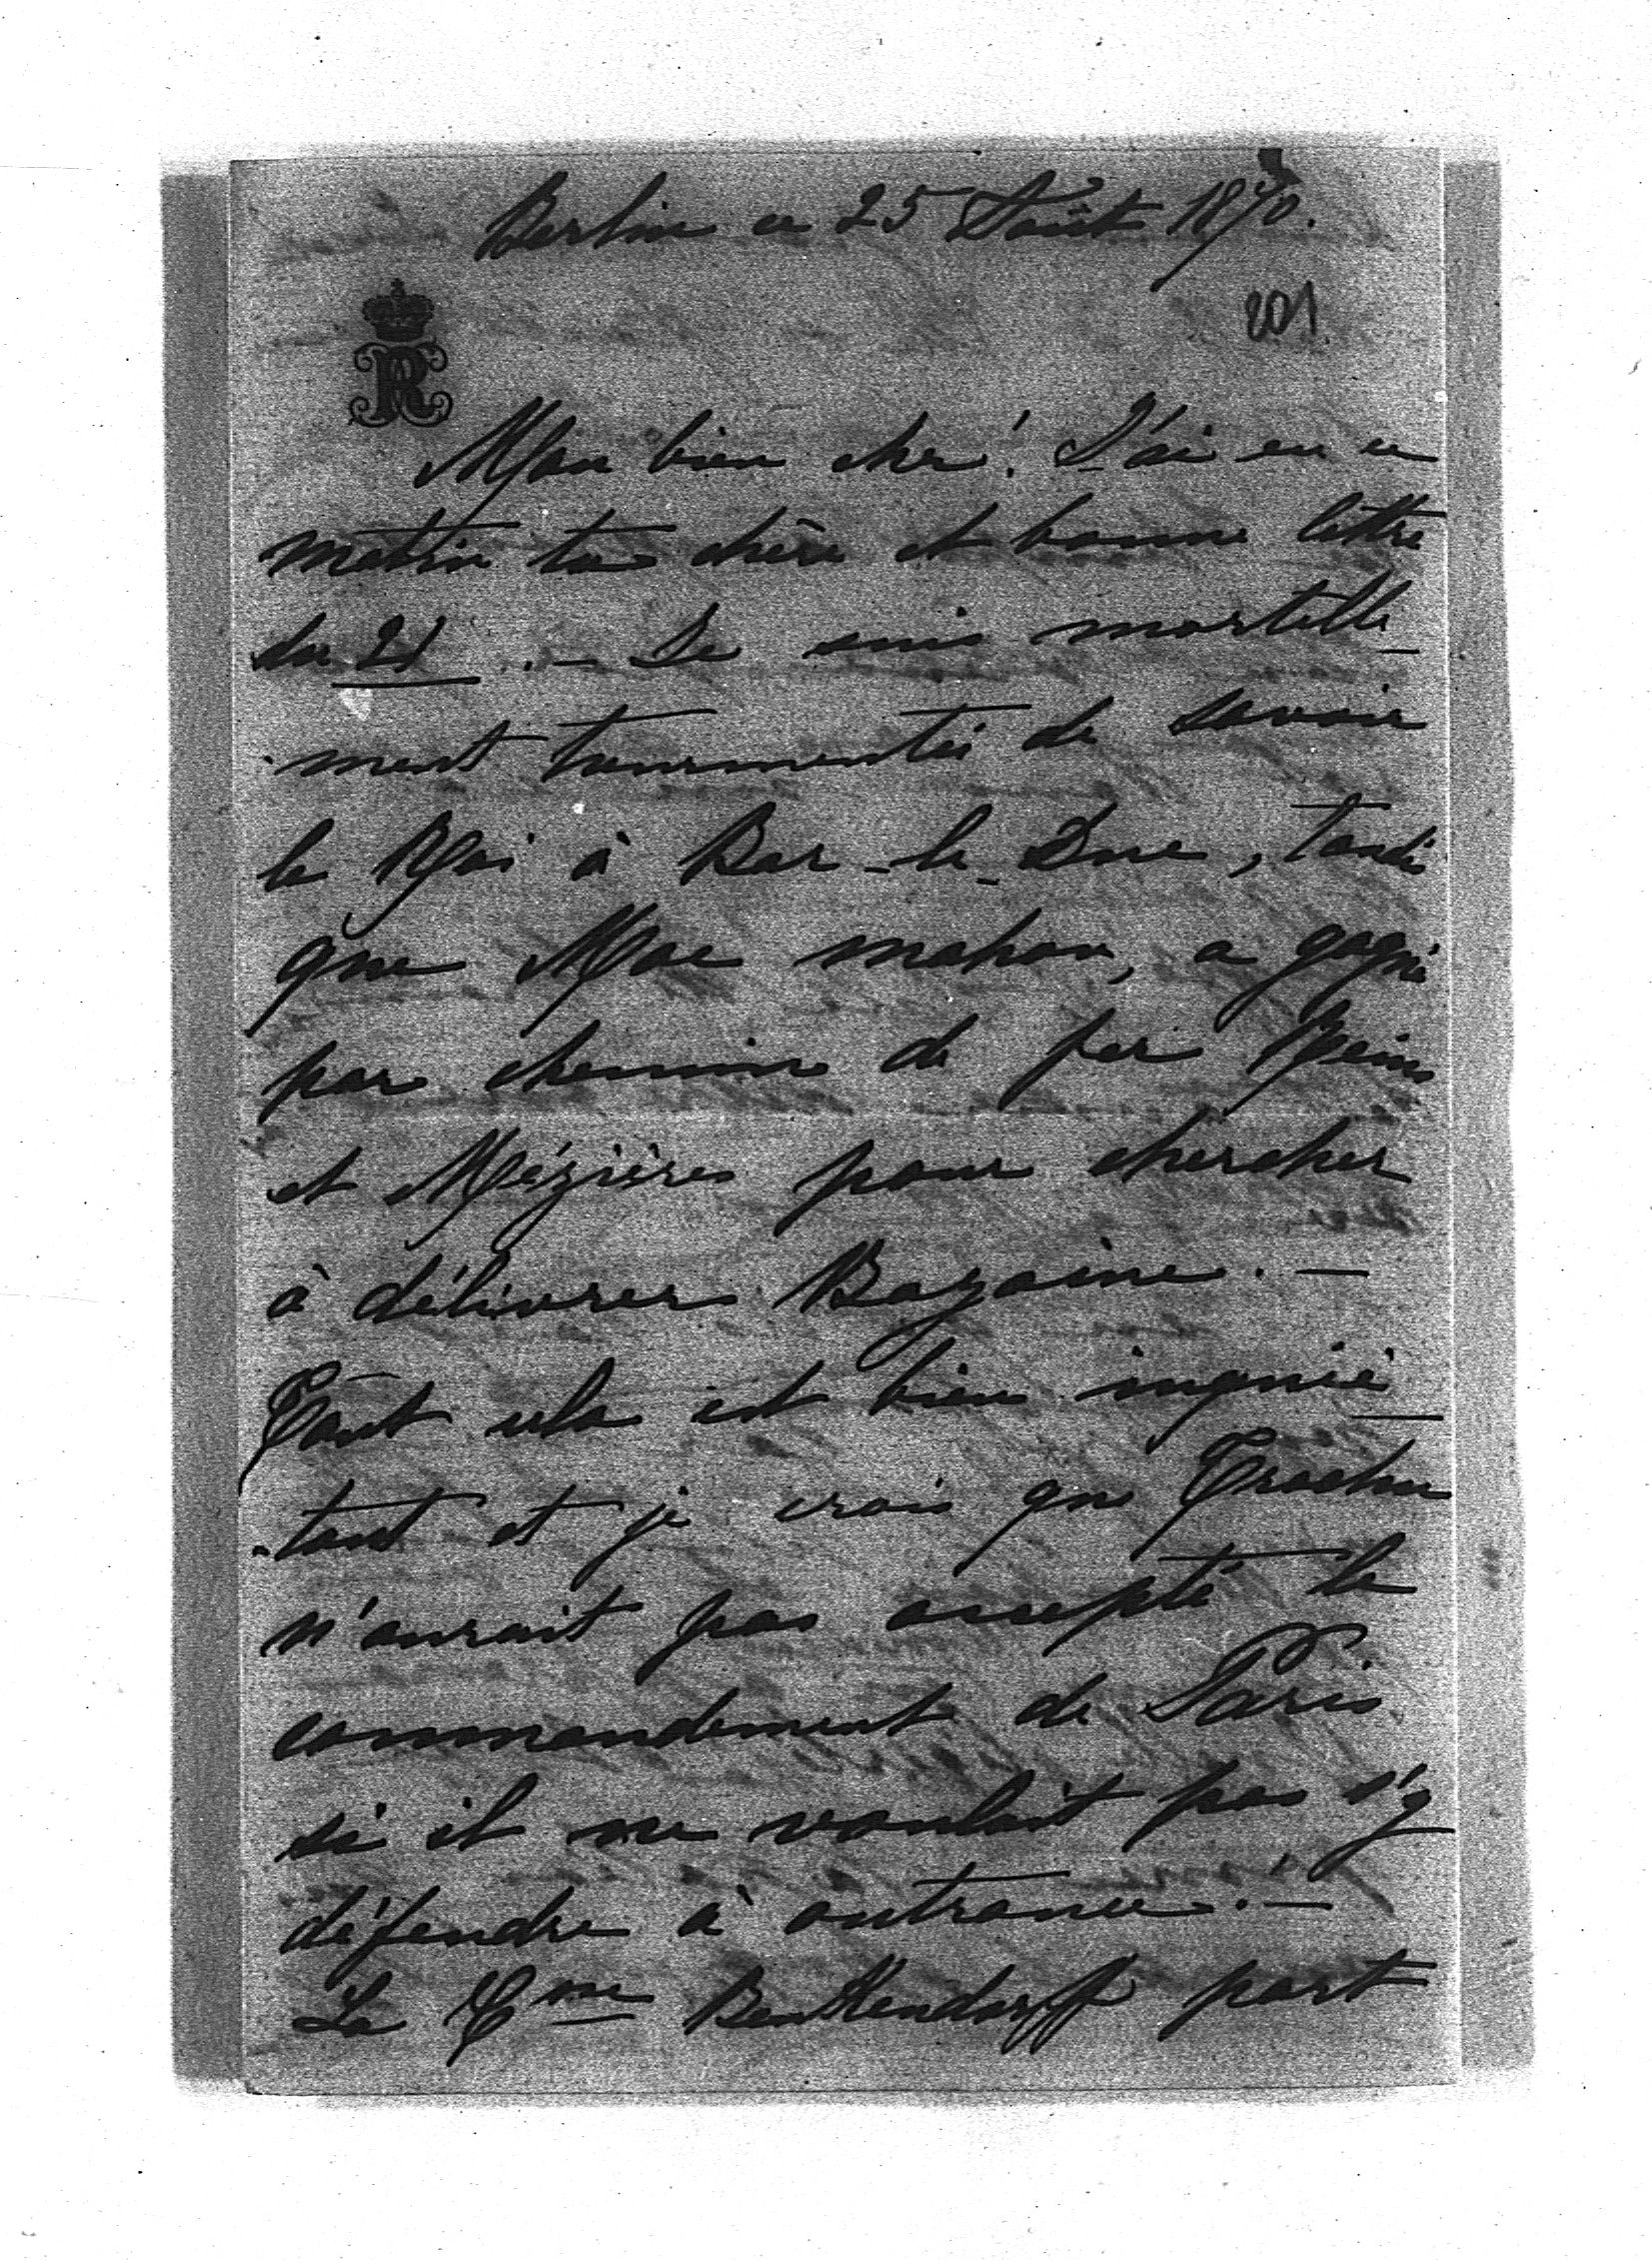 Berlin ce 25 Août 1870.
201
R
Mon bien cher! J'ai eu ce
matin ta chère et bonne lettre
du 21 . — Je suis mortelle_
ment tourmentée de savoir
le Roi à Bar-le-Duc, tandis
que Mac mahon, a gagné
par chemin de fer Reims
et Mézières pour chercher
à délivrer Bazaine. —
Tout cela est bien inquié_
tant et je crois que Trochu
n'aurait pas accepté le
commandement de Paris
si il ne voulait pas s'y
défendre à outrance. —
La Csse Benkendorff part